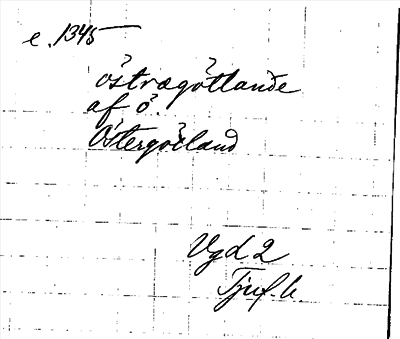 e. 1345
östrægötlande
af ö.
Östergötland
Vgd 2
Tjuf. b.